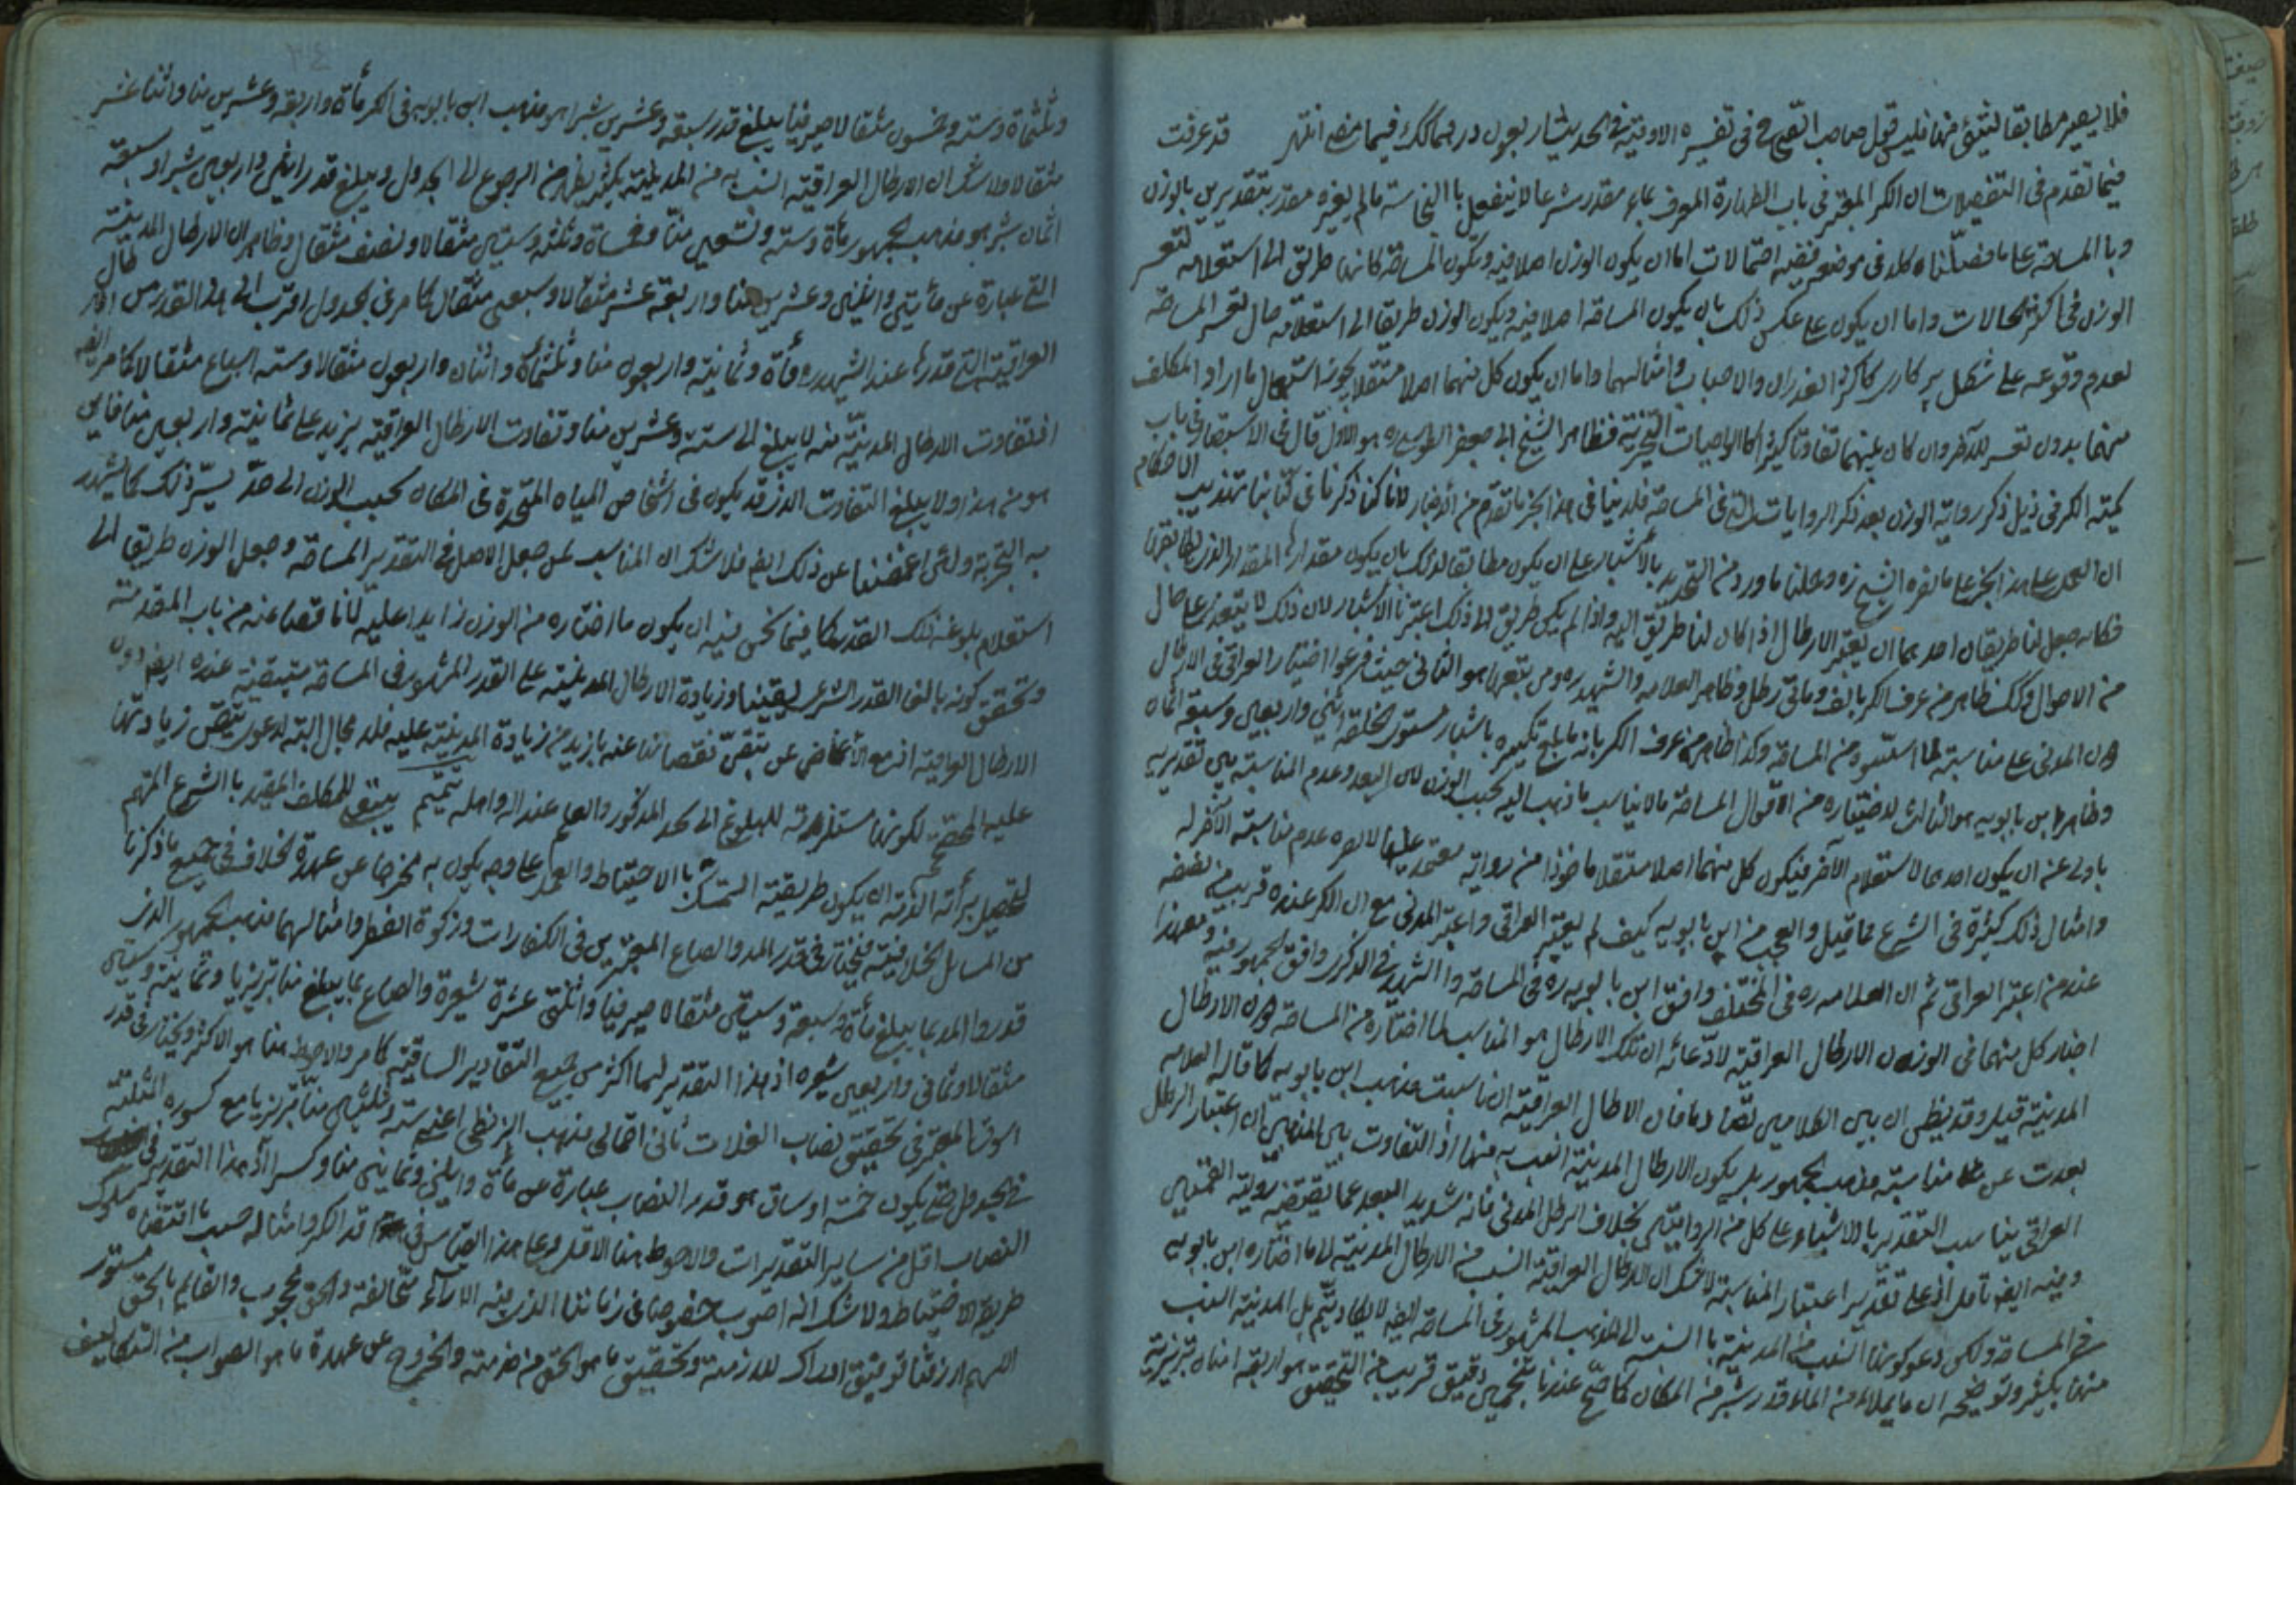 فلا يصير مطابقا لشئ منها فليس قول صاحب الصحاح فى تفسير الاوقية فى الحديث اربعون درهما كذلك فيما مضى انتهى قد عرفت
فيما تقدم فى التفصيلات ان الكر المعتبر فى باب الطهارة المعرف بماء مقدر شرعا لا ينفعل بالنجاسة مالم يغيره مقدر بتقديرين بالوزن
وبا المساحة على ما فصلناه كل فى موضعه ففيه احتمالات اما ان يكون الوزن اصلا فيه وتكون المساحة كانها طريق الى استعلامه لتعسر
الوزن فى اكثر الحالات واما ان يكون على عكس ذلك بان يكون المساحة اصلا فيه ويكون الوزن طريقا الى استعلامه حال تعسر المساحة
لعدم وقوعه على شكل بر كارى كاكثر الغدران والاحباب وامثالهما واما ان يكون كل منهما اصلا مستقلا يجوز استعمال ما اراد المكلف
منهما بدون تعسر للآخر وان كان بينهما تفاوتا كثيرا كالواجبات التخييرية فظاهر الشيخ ابى جعفر الطوسى ره هو الاول قال فى الاستبصار فى باب
كمية الكر فى ذيل ذكر رواية الوزن بعد ذكر الروايات الثلث فى المساحة فلا ينافى هذا الخبر ما تقدم من الاخبار لانا كنا ذكرنا فى كتابنا تهذيب الاحكام
ان العمل على هذا الخبر على ما فسره الشيخ ره وحملنا ما ورد من التحديد بالاشبار على ان يكون مطابقا لذلك بان يكون مقدارها المقدار الذى يطابقها
فكانه جعل لنا طريقان احدهما ان يعتبر الارطال اذا كان لنا طريق اليه واذا لم يكن طريق الى ذلك اعتبرنا الاشبار لان ذلك لا يتعذر على حال
من الاحوال وكذلك ظاهر من عرف الكر بالف ومائتى رطل وظاهر العلامه والشهيد ره ومن تبعهما هو الثانى حيث فرعوا اختيار العراقى فى الارطال
دون المدنى على مناسبته لما استنبطوه من المساحة وكذا ظاهر من عرف الكر بانه ما بلغ تكسيره باشبار مستوى الخلقة اثنى واربعين وسبعة اثمان
وظاهر ابن بابويه هو الثالث لاختياره من الاقوال المساحة ما لا يناسب ما ذهب اليه بحسب الوزن لان البعد وعدم المناسبة بين تقديريه
باوله عنه ان يكون احدهما لاستعلام الآخر فيكون كل منهما اصلا مستقلا ماخوذا من رواية معتمد عليها لا يضره عدم مناسبته الآخر له
وامثال ذلك كثيرة فى الشرع مما قيل والعجب من ابن بابويه كيف لم يعتبر العراقى واعتبر المدنى مع ان الكر عنده قريب من نصفه
عند من اعتبر العراقى ثم ان العلامه ره فى المختلف وافق ابن بابويه ره فى المساحة والشهيد فى الذكرى وافق الجمهور فيه ومع هذا
اختار كل منهما فى الوزن الارطال العراقية لادعائه ان تلك الارطال هو المناسب لما اختاره من المساحة دون الارطال
المدنية قيل وقد يظن ان بين الكلامين تضادا فان الارطال العراقية ان ناسبت مذهب ابن بابويه كما قاله العلامه
بعدت عن مناسبة مذهب الجمهور بل يكون الارطال المدنية انسب به منها اذ التفاوت بين المذهبين ان اعتبار الرطل
العراقى يناسب التقدير بالاشبار وعلى كل من الروايتين بخلاف الرطل المدنى فانه شديد البعد عما يقتضيه رواية القميين
وفيه ايضا تامل اذ على تقدير اعتبار المناسبة لا شك ان الارطال العراقية انسب من الارطال المدنية لما اختاره ابن بابويه
فى المساحة ولكن دعوى كونها انسب من المدنية بالنسبة الى المذهب المشهور فى المساحة ايضا لا يكاد يتم بل المدنية انسب
منها بكثير وتوضيحه ان ما يملاه من الماء قدر شبر من المكان كما صح عندنا بتخمين دقيق قريب من التحقيق هو اربعة امنان تبريزية
وثلثمأة وستة وخمسون مثقالا صيرفيا فيبلغ قدر سبعة وعشرين شبرا هو مذهب ابن بابويه فى الكر مأة واربعة وعشرين منا واثنا عشر
مثقالا ولا شك ان الارطال العراقية انسب به من المدنية بكثير يظهر من الرجوع الى الجدول ويبلغ قدر اثنين واربعين شبرا وسبعة
اثمان شبر هو مذهب الجمهور مأة وستة وتسعين منا وخمسمأة وثلثة وستين مثقالا ونصف مثقال وظاهر ان الارطال المدنية
التى عبارة عن مأتين واثنين وعشرين منا واربعة عشر مثقالا وسبعى مثقال كما مر فى الجدول اقرب الى هذا القدر من الارطال
العراقية التى قدرها عند الشهيد ره مأة وثمانية واربعون منا وثلثمأة واثنان واربعون مثقالا وستة اسباع مثقالا كما مر ايضا
اذ تفاوت الارطال المدنية منه لا يبلغ الى ستة وعشرين منا وتفاوت الارطال العراقية يزيد على ثمانية واربعين منا فاين
هو من هذا ولا يبلغ التفاوت الذى قد يكون فى اشخاص المياه المتحدة فى المكان بحسب الوزن الى حد يستر ذلك كما يشهد
به التجربة ولئن اغمضنا عن ذلك ايضا فلا شك ان المناسب لمن جعل الاصل فى التقدير المساحة وجعل الوزن طريقا الى
استعلام بلوغه ذلك القدر كما فيما نحن فيه ان يكون ما اختاره من الوزن زايدا عليه لا ناقصا عنه من باب المقدمة
وتحقق كونه بالغا القدر الشرعى يقينا وزيادة الارطال المدنية على القدر المشهور فى المساحة متيقنة عنده ايضا دون
الارطال العراقية اذ مع الاغماض عن تيقن نقصانها عنه بازيد من زيادة المدنية عليه فلا مجال البتة لدعوى تيقن زيادتها
عليه المحتج لكونها مستلزمة للبلوغ الى الحد المذكور والعلم عند الله واهله تتميم ينبغى للمكلف المقيد بالشرع المهتم
لتحصيل برأة الذمة ان يكون طريقته التمسك بالاحتياط والعمل على وجه يكون به مخرجا عن عهدة الخلاف فى جميع ما ذكرنا
من المسائل الخلافية فيختار فى قدر المد والصاع المعتبرين فى الكفارات وزكوة الفطر وامثالهما مذهب الجمهور الذين
قدروا المد بما يبلغ مأة وسبعة وستين مثقالا صيرفيا واثنتى عشرة شعيرة والصاع بما يبلغ منا تبريزيا وثمانية وستين
مثقالا وثمانى واربعين شعيره اذ هذا التقدير لهما اكثر من جميع التقادير السابقة كما مر والاحوط هنا هو الاكثر ويختار فى قدر
الوسق المعتبر فى تحقيق نصاب الغلات ثانى احتمالى مذهب البزنطى اعنى ستة وثلثين منا تبريزيا مع كسوره المثبتة
فى الجدول حتى يكون خمسة اوساق هو قدر النصاب عبارة عن مأة واثنين وثمانين منا وكسرا اذ هذا التقدير فى
النصاب اقل من ساير التقديرات والاحوط هنا الاقل وعلى هذا القياس فى قدر الكر وامثاله حسب ما اقتضاه سلوك
طريق الاحتياط ولا شك انه اصوب خصوصا فى زماننا الذى فيه الآراء متخالفة والحق محجوب والقايم بالحق مستور
اللهم ارزقنا توفيق ادراك لازمنه وتحقيق ما هو الحق من خدمته والخروج عن عهدة ما هو الصواب من التكاليف